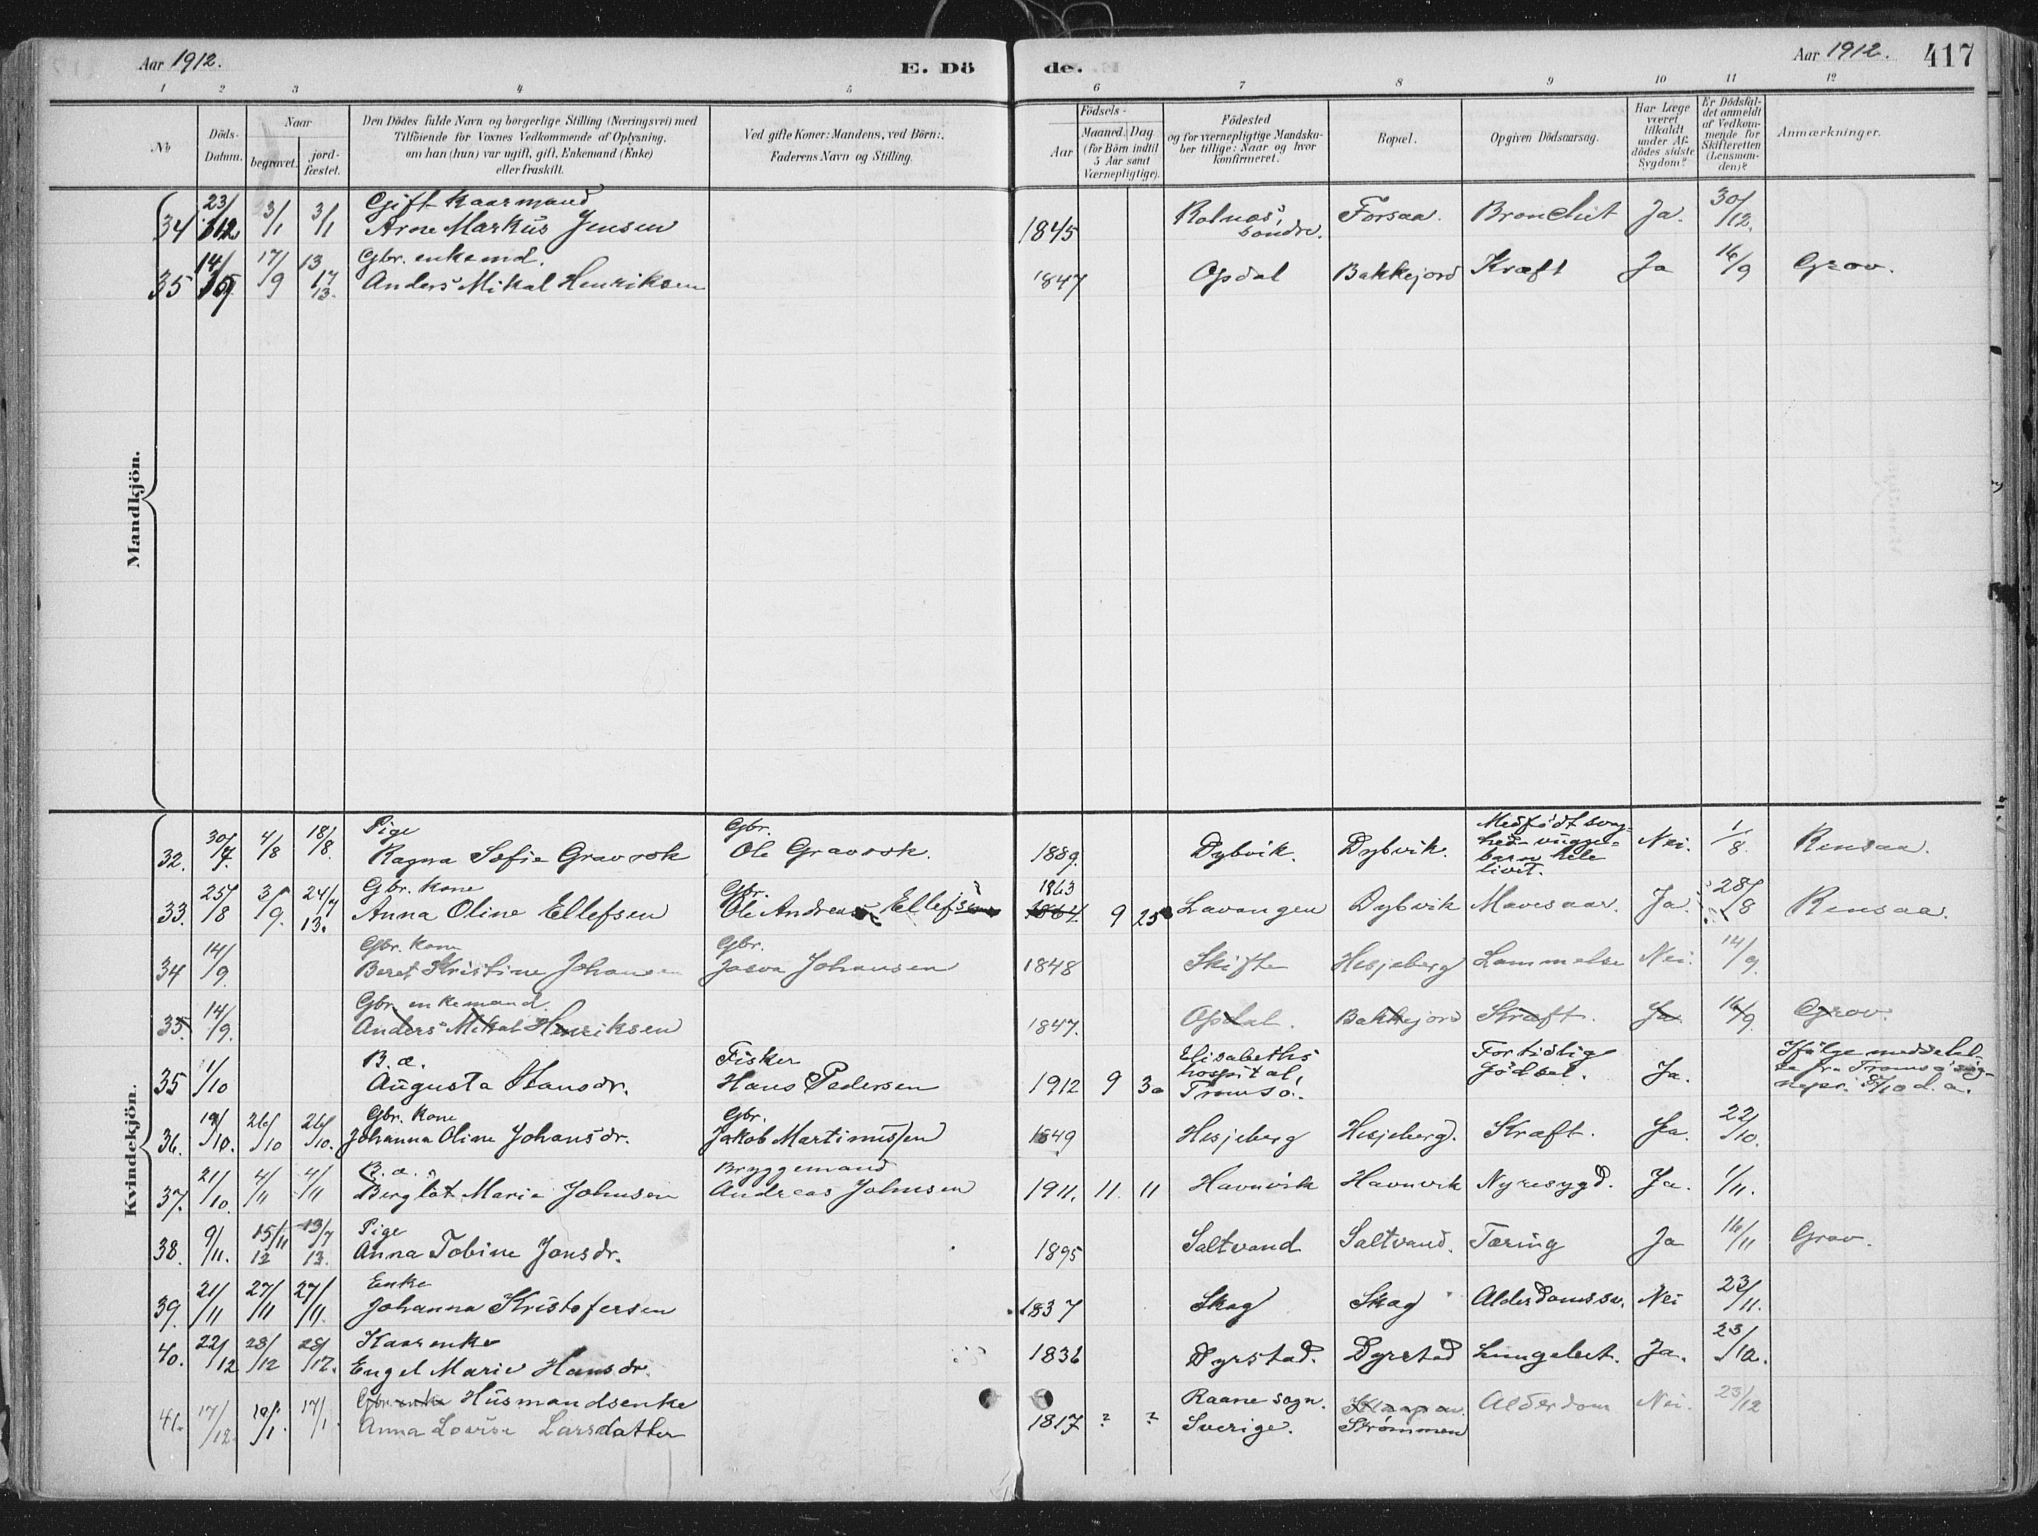 Aar 1912.
E. Dö
de.
Aar 1912.
417
1 2 3 4 5 6 7 8 9 10 11 12
No
Döds-
Datum.
Naar
begravet.
jord-
fæstet.
Den Dödes fulde Navn og borgerlige Stilling (Næringsvei) med
Tilföiende for Voxnes Vedkommende af Oplysning,
om han (hun) var ugift, gift, Enkemand (Enke)
eller fraskilt.
Ved gifte Koner: Mandens, ved Börn:,
Faderens Navn og Stilling.
Födsels-
Aar
Maaned. Dag
(for Börn indtil
5 Aar samt
Værnepligtige).
Födested
og for værnepligtige Mandska-
ber tillige: Naar og hvor
konfirmeret.
Bopæl.
Opgiven Dödsaarsag.
Har Læge
været
tilkaldt
under Af-
dödes sidste
Sygdom?
Er Dödsfal-
det anmeldt
af Vedkom-
mende for
Skifteretten
(Lensman-
den)?
Anmærkninger.
Mandkjön.
23/ Gift Kaarmand 30/
34 12 3/1 3/1 Arne Markus Jensen 1845 Rolnæs, søndre. Forsaa. Bronchit Ja. 12.
14/ 17/ 13 Gbr. enkemd. 16/
35 9 9 17 13. Anders Mikal Henriksen 1847 Opdal Bakkejord Kræft Ja 9 Grov.
Kvindekjön.
Pige Gbr. Medfödt svag-
32. 30/7. 4/8 18/8. Ragna Sofie Gravrok Ole Gravrok. 1889. Dybvik. Dybvik. hed - vugge-
barn hele
livet. Nei. 1/8. Rensaa.
Gbr. Kone Gbr. 1863
33. 25/8 3/9. 24/7 13. Anna Oline Ellefsen Ole Andreas Ellefsen 1864 9 25 Lavangen Dybvik Mavesaar. Ja. 28/8 Rensaa.
Gbr. Kone Gbr.
34 14/9. Beret Kristine Johansen Johansen 1848 Skifte Hesjeberg Lammelse Nei. 14/9.
Gbr. enkemand
35 14/9. Anders Mikal Henriksen 1847. Opdal. Bakkejord Kræft. Ja 16/9 Grov.
B. æ. Fisker Elisabeths Fortidlig Ifølge meddelel-
35 1/10 Augusta Hansdr. Hans Pedersen 1912 9 30 hospital, födsel. Ja.
Tromsø.
Gbr. Kone Gbr.
36. 19/10. 26/10 26/10. Johanna Oline Johansdr. Jakob Martinussen 1849 Hesjeberg Hesjeberg. Kræft. Ja. 22/10.
B. æ. Bryggemand
37. 21/10. 4/11 4/11 Bergljot Marie Johnsen Andreas Johnsen 1911. 11. 11 Havnvik Havnvik Nyresygd. Ja. 1/11.
Pige
38. 9/11. 15/11 12 13/7 13. Anna Tobine Jonsdr. 1895 Saltvand Saltvand. Tæring Ja 16/11 Grov.
Enke
39. 21/11 27/11 27/11. Johanna Kristofersen 1837 Skog Skog Alderdomssv. Nei 23/11.
Kaarenke
40. 22/12 28/12 28/12. Engel Marie Hansdr. 1836 Dyrstad. Dyrstad Lungebet. Ja. 23/12.
Gbr. enke Husmandsenke Raane sogn.
41. 17/12. 17/1 Anna Lovise Larsdatter 1817 ? ? Sverige. Strømmen Alderdom Nei. 23/12